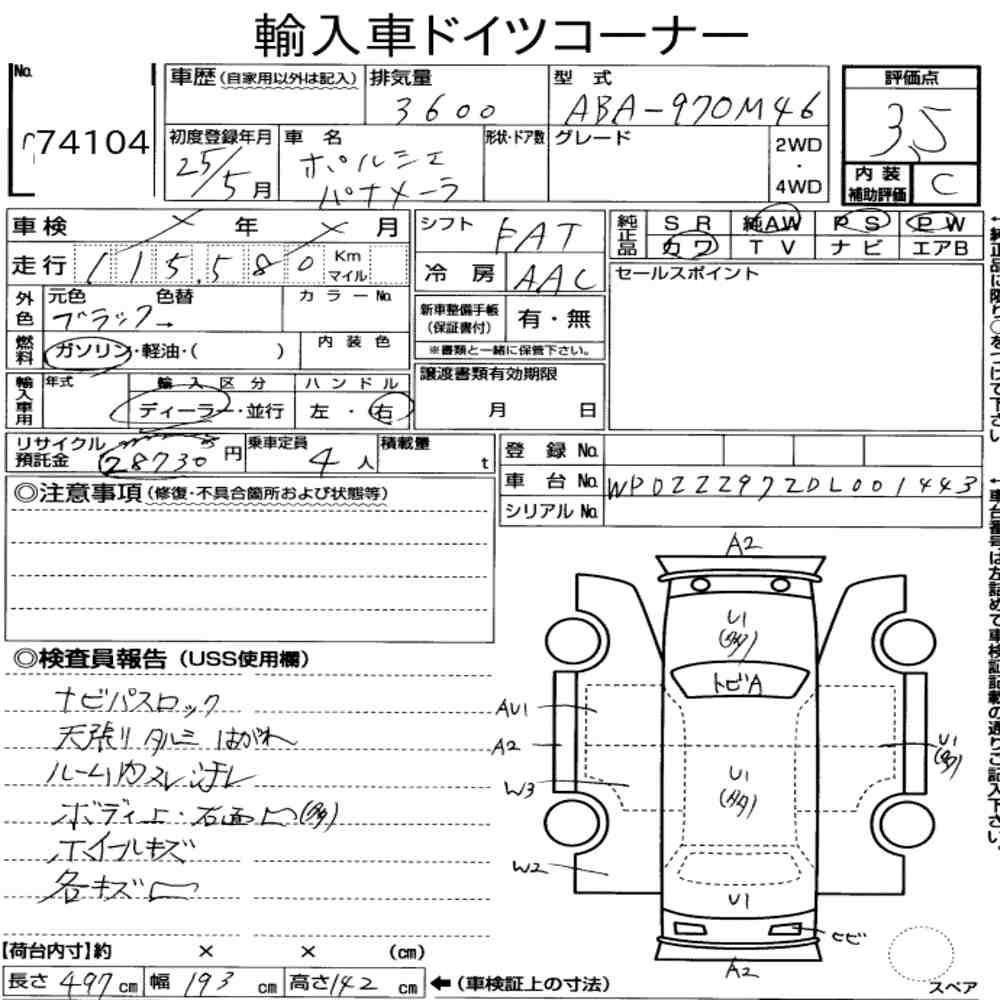 輸入車ドイツコーナー
No.
74104
車歴(自家用以外は記入)
排気量
3600
型式
ABA-970M46
評価点
3.5
初度登録年月
25/5月
車名
ポルシェ
パナメーラ
形状・ドア数
グレード
2WD
・
4WD
内装
補助評価
C
車検 × 年 × 月
走行 115,580 Km
マイル
シフト FAT
冷房 AAC
純正品
SR 純AW PS PW
カワ TV ナビ エアB
外色
元色 色替
ブラック→
カラーNo.
新車整備手帳
(保証書付)
有・無
※書類と一緒に保管下さい。
セールスポイント
燃料
ガソリン・軽油・( )
内装色
輸入車用
年式
輸入区分
ディーラー・並行
ハンドル
左・右
譲渡書類有効期限
月 日
リサイクル
預託金
28730円
乗車定員
4人
積載量
t
登録No.
車台No. WP0ZZZ97ZDL001443
シリアルNo.
◎注意事項(修復・不具合箇所および状態等)
◎検査員報告(USS使用欄)
ナビパスロック
天張りタルミ はがれ
ルーム内スレ汚レ
ボディ上・右面凹(多)
ホイールキズ
各キズ凹
A2
U1
(多)
トビA
AU1
A2
W3
W2
U1
(多)
U1
(多)
U1
ヒビ
A2
スペア
【荷台内寸】約 × × (cm)
長さ 497 cm 幅 193 cm 高さ 142 cm ←(車検証上の寸法)
←純正品に限り○をつけて下さい。
←車台番号は左詰めて車検証記載の通りご記入下さい。